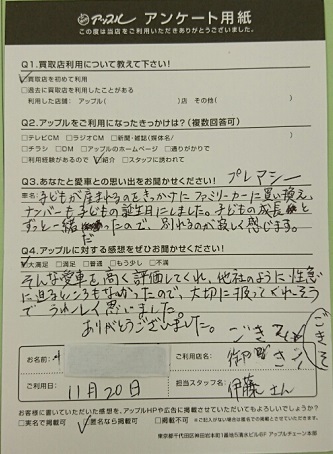 アップル アンケート用紙
この度は当店をご利用いただきありがとうございました。
Q1.買取店利用について教えて下さい!
☑買取店を初めて利用
□過去に買取店を利用したことがある
利用した店舗: アップル( )店 その他( )
Q2.アップルをご利用になったきっかけは?(複数回答可)
□テレビCM □ラジオCM □新聞・雑誌(媒体名/ )
□チラシ □DM □アップルのホームページ □通りがかりで
□利用経験があるので ☑紹介 □スタッフに誘われて
Q3.あなたと愛車との思い出をお聞かせください! プレマシー
車名:子どもが産まれるのをきっかけにファミリーカーに買い換え、
ナンバーも子どもの誕生日にしました。子どもの成長と
ずっと一緒だったので、別れるのが寂しく感じます。
Q4.アップルに対する感想をぜひお聞かせください!
☑大満足 □満足 □普通 □もう少し □不満
そんな愛車を高く評価してくれ、他社のように性急
に迫るところもなかったので、大切に扱ってくれそう
でうれしく思いました。
ありがとうございました。
お名前:
ご利用店名:
ご利用日: 11月20日
担当スタッフ名: 伊藤さん
お客様に書いていただいた感想を、アップルHPや広告に掲載させていただいてもよろしいでしょうか?
□実名で掲載可 ☑匿名なら掲載可 □掲載不可
東京都千代田区神田岩本町1番地岩本町清水ビル6F アップルチェーン本部